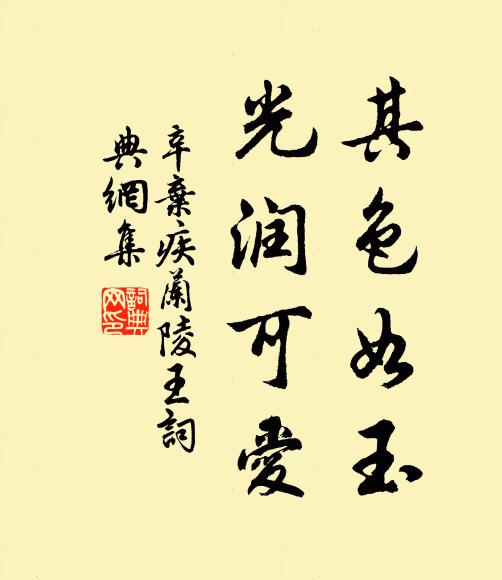 其色如玉
光润可愛
辛棄疾蘭陵王詞
典網集
詞典網印